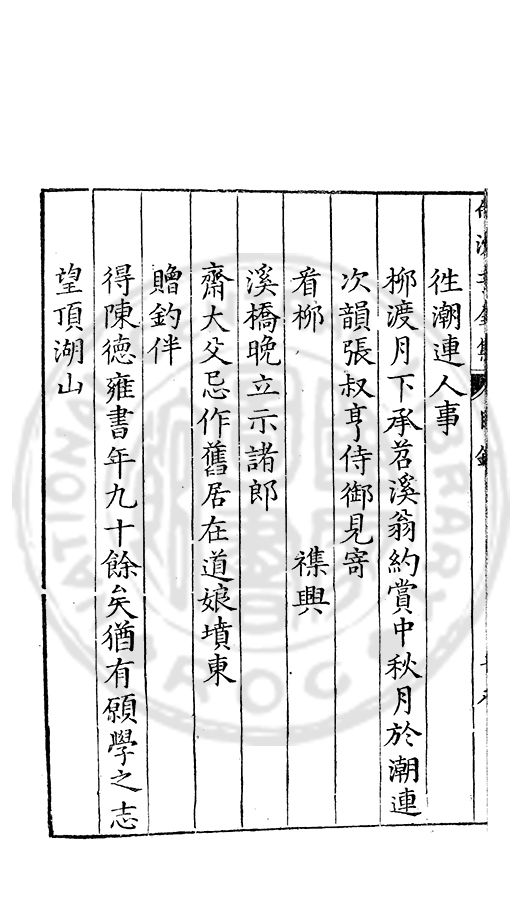 徃潮連人事
柳渡月下承苕溪翁約賞中秋月於潮連
次韻張叔亨侍御見寄
看柳 襍興
溪橋晚立示諸郎
齋大父忌作舊居在道娘墳東
贈釣伴
得陳德雍書年九十餘矣猶有願學之志
望頂湖山